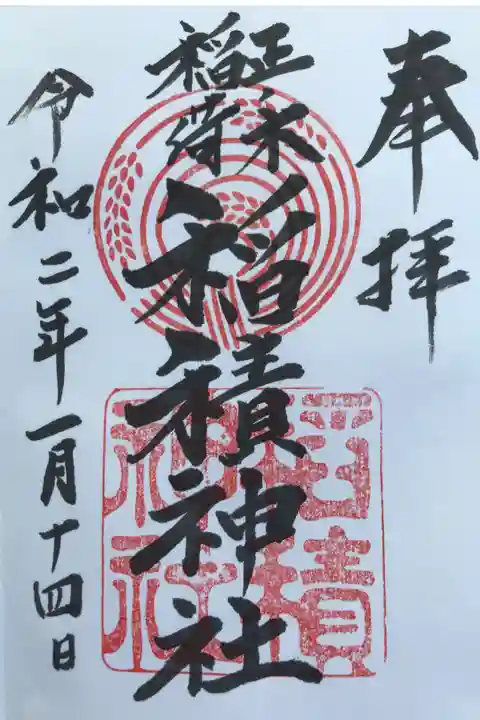 奉拝
正木
稲荷
稲積神社
稲積
神社
令和二年一月十四日